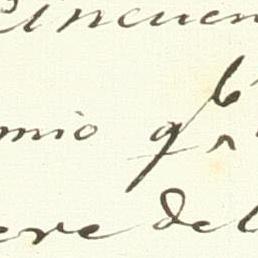 Cincuen
mio q^b
ere del